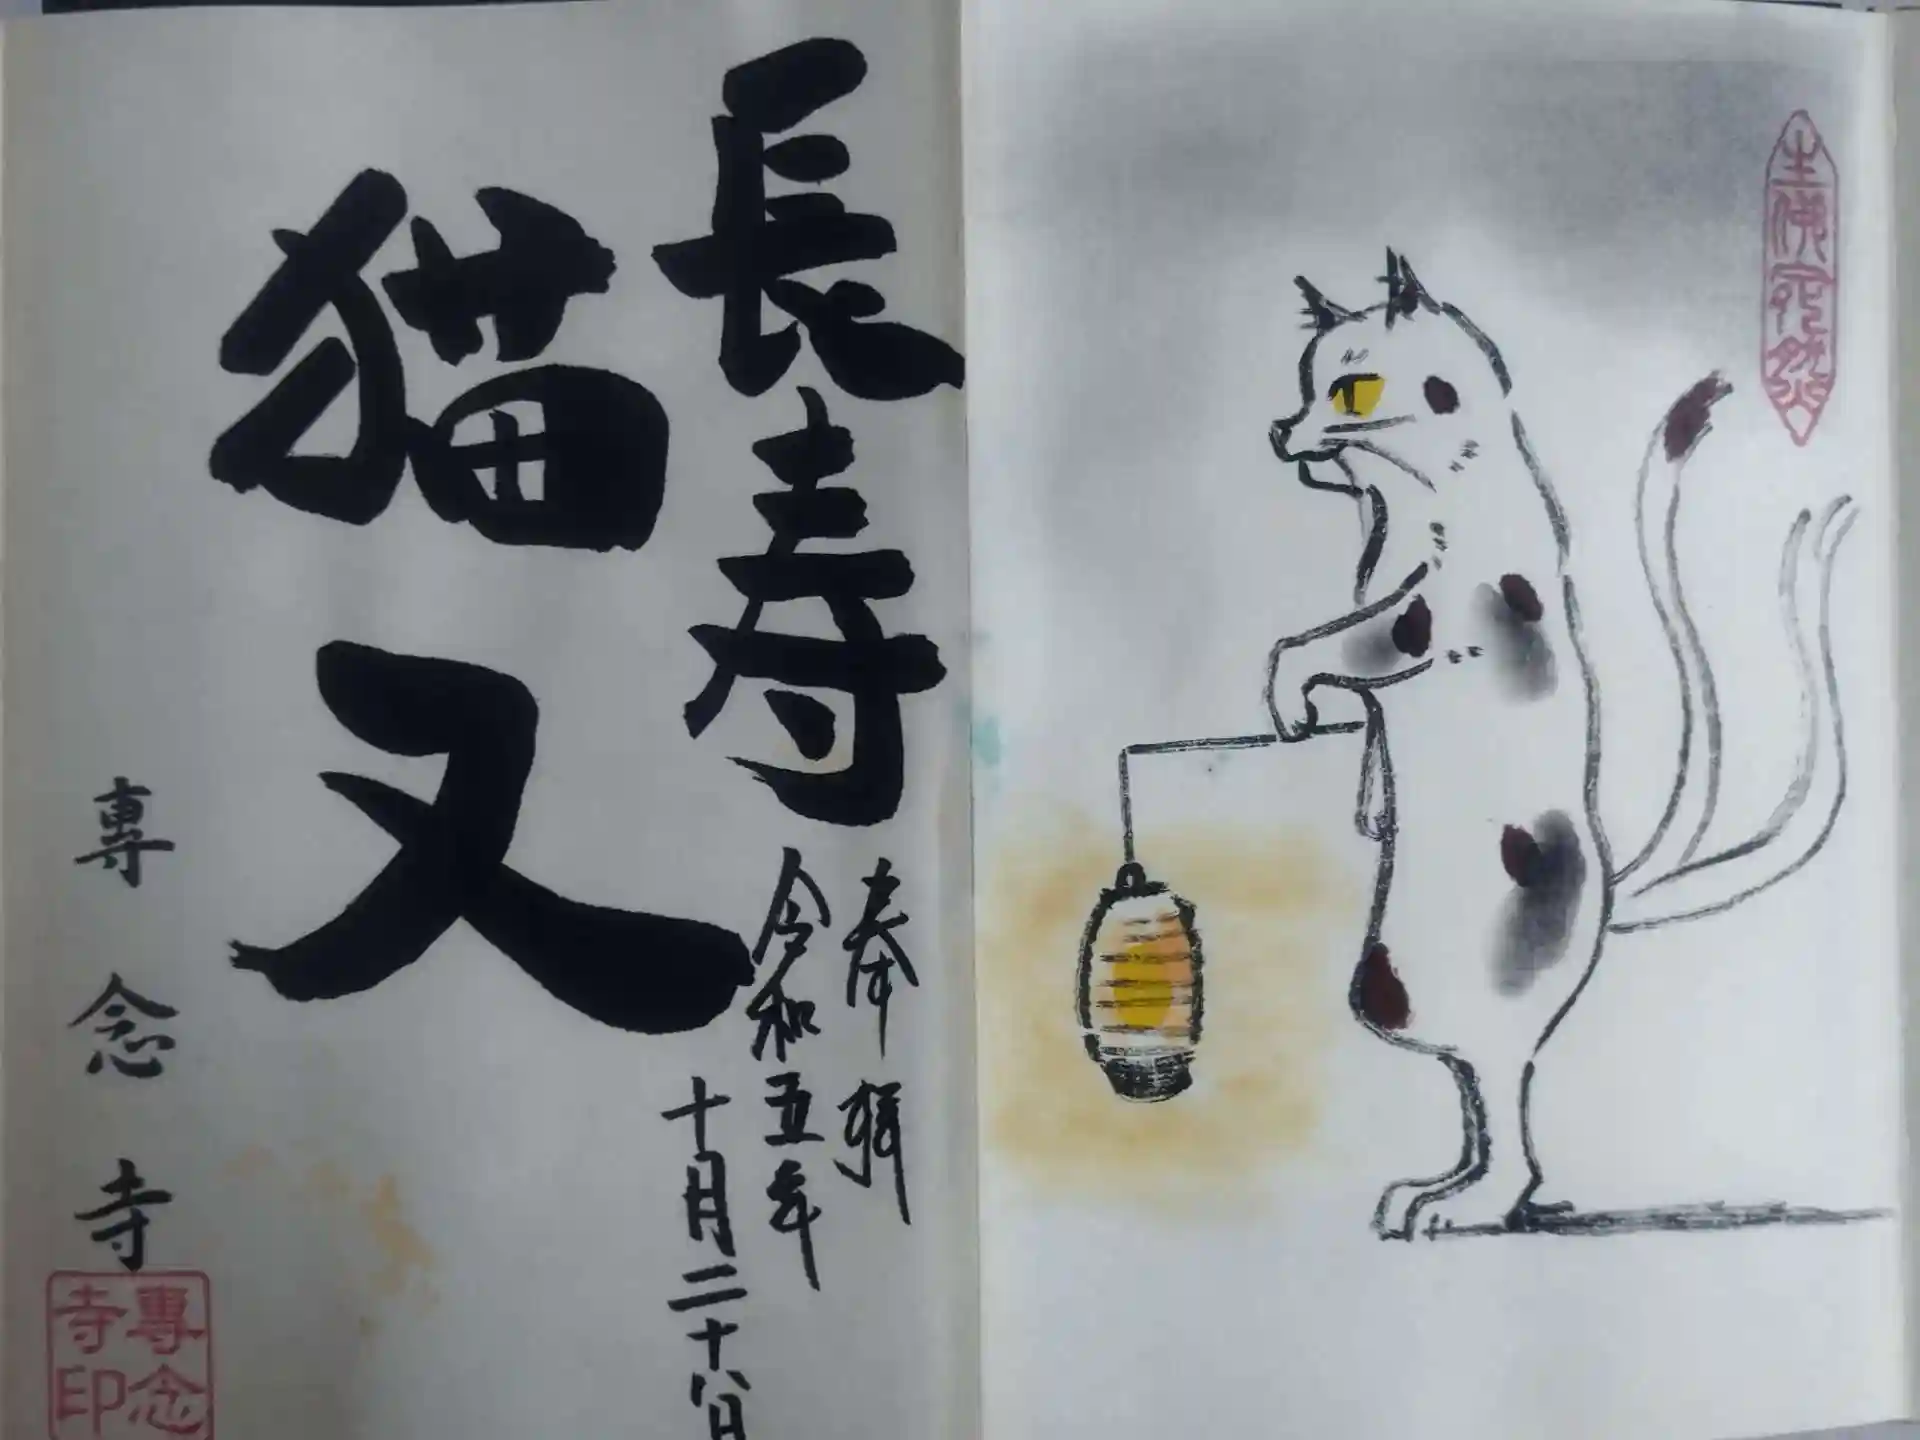 生佛宛然
長寿
猫又
奉拝
令和五年
十月二十八日
專念寺
專念寺印